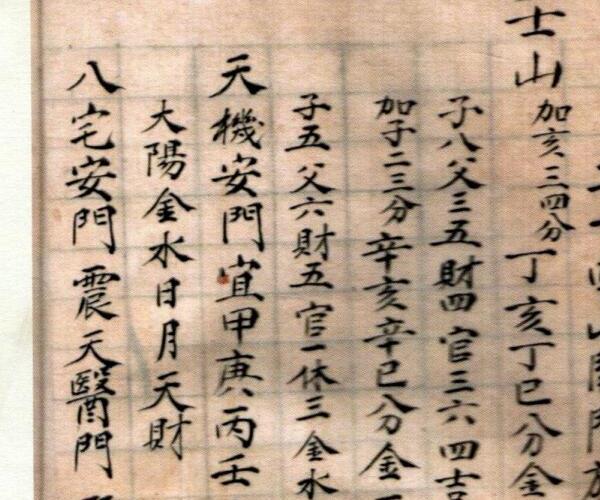 士山加亥三四分丁亥丁巳分金
子八父三五財四官三六四吉
加子二三分辛亥辛巳分金
子五父六財五官一休三金水
天機安門宜甲庚丙壬
大陽金水日月天財
八宅安門震天醫門